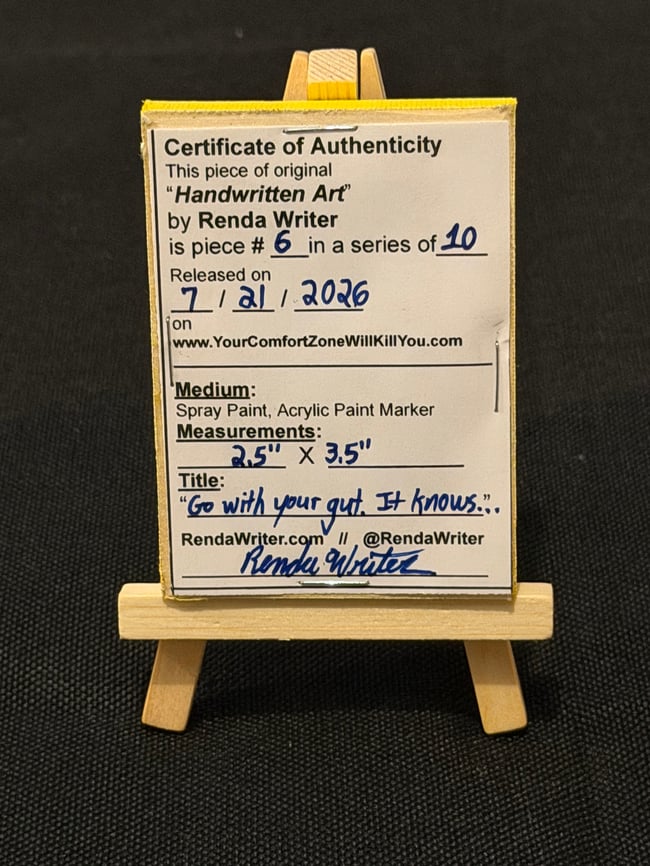 Certificate of Authenticity
This piece of original
"Handwritten Art"
by Renda Writer
is piece # 6 in a series of 10
Released on
7 / 21 / 2026
on
www.YourComfortZoneWillKillYou.com
Medium:
Spray Paint, Acrylic Paint Marker
Measurements:
2.5" X 3.5"
Title:
"Go with your gut. It knows.".
RendaWriter.com // @RendaWriter
Renda Writer